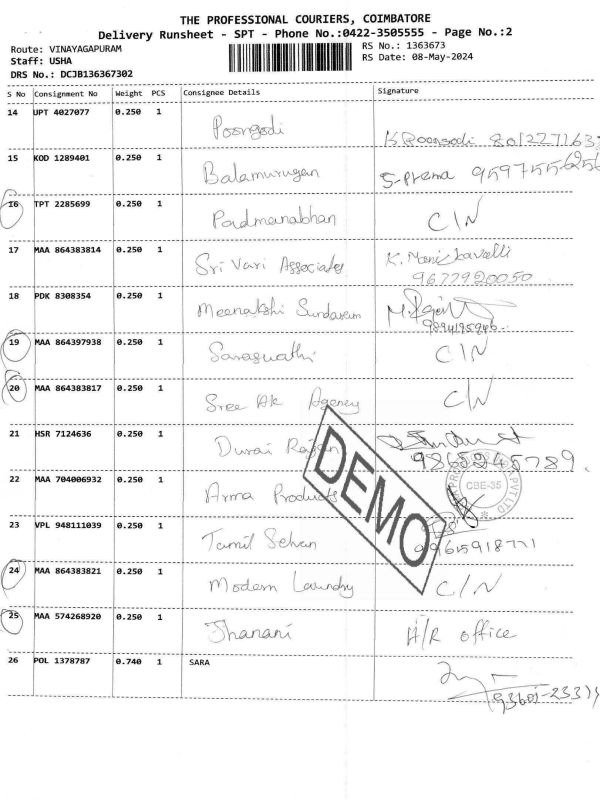 THE PROFESSIONAL COURIERS, COIMBATORE
Delivery Runsheet - SPT - Phone No.:0422-3505555 - Page No.:2
Route: VINAYAGAPURAM
Staff: USHA
DRS No.: DCJB136367302
RS No.: 1363673
RS Date: 08-May-2024
S No Consignment No Weight PCS Consignee Details Signature
14 UPT 4027077 0.250 1 Poongodi
15 KOD 1289401 0.250 1 Balamurugan S-Prema
16 TPT 2285699 0.250 1 Padmanabhan C/N
17 MAA 864383814 0.250 1 Sri Vari Associates
9677920050
18 PDK 8308354 0.250 1 Meenakshi Sundaram
19 MAA 864397938 0.250 1 Saraswathi C/N
20 MAA 864383817 0.250 1 Sree Ak Agency C/N
21 HSR 7124636 0.250 1 Durai Rajan
9865245789
22 MAA 704006932 0.250 1 Arma Products
CBE-35
DEMO
23 VPL 948111039 0.250 1 Tamil Selvan
24 MAA 864383821 0.250 1 Modern Laundry C/N
25 MAA 574268920 0.250 1 Jhanani H/R office
26 POL 1378787 0.740 1 SARA